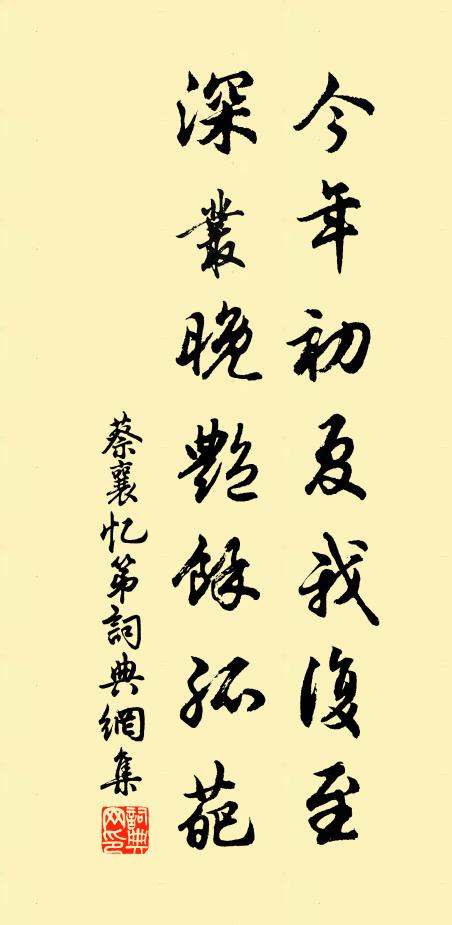 今年初夏我復至
深叢晚艷餘孤葩
蔡襄忆弟詞典網集
詞典网印